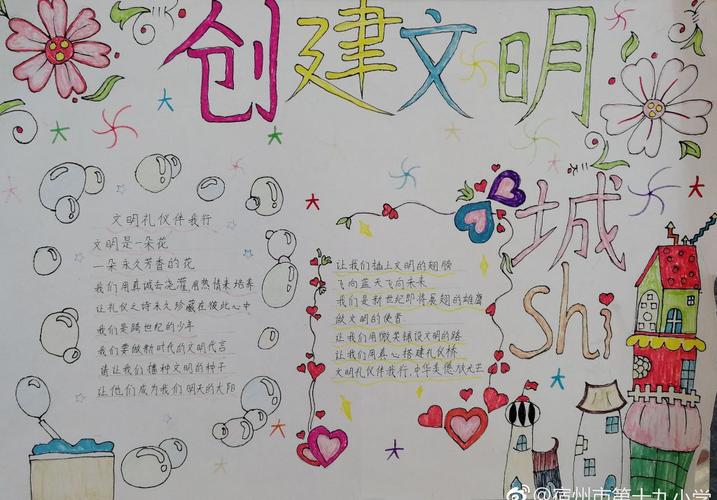 创建文明
城
Shi
文明礼仪伴我行
文明是一朵花
一朵永久芳香的花
我们用真诚去浇灌用热情来培养
让礼仪之诗永久珍藏在彼此心中
我们是跨世纪的少年
我们要做新时代的文明代言
请让我们播种文明的种子
让他们成为我们明天的太阳
让我们插上文明的翅膀
飞向蓝天飞向未来
我们是新世纪即将展翅的雄鹰
做文明的使者
让我们用微笑铺设文明的路
让我们用真心搭建礼仪桥
文明礼仪伴我行,中华美德放光芒
@宿州市第十九小学